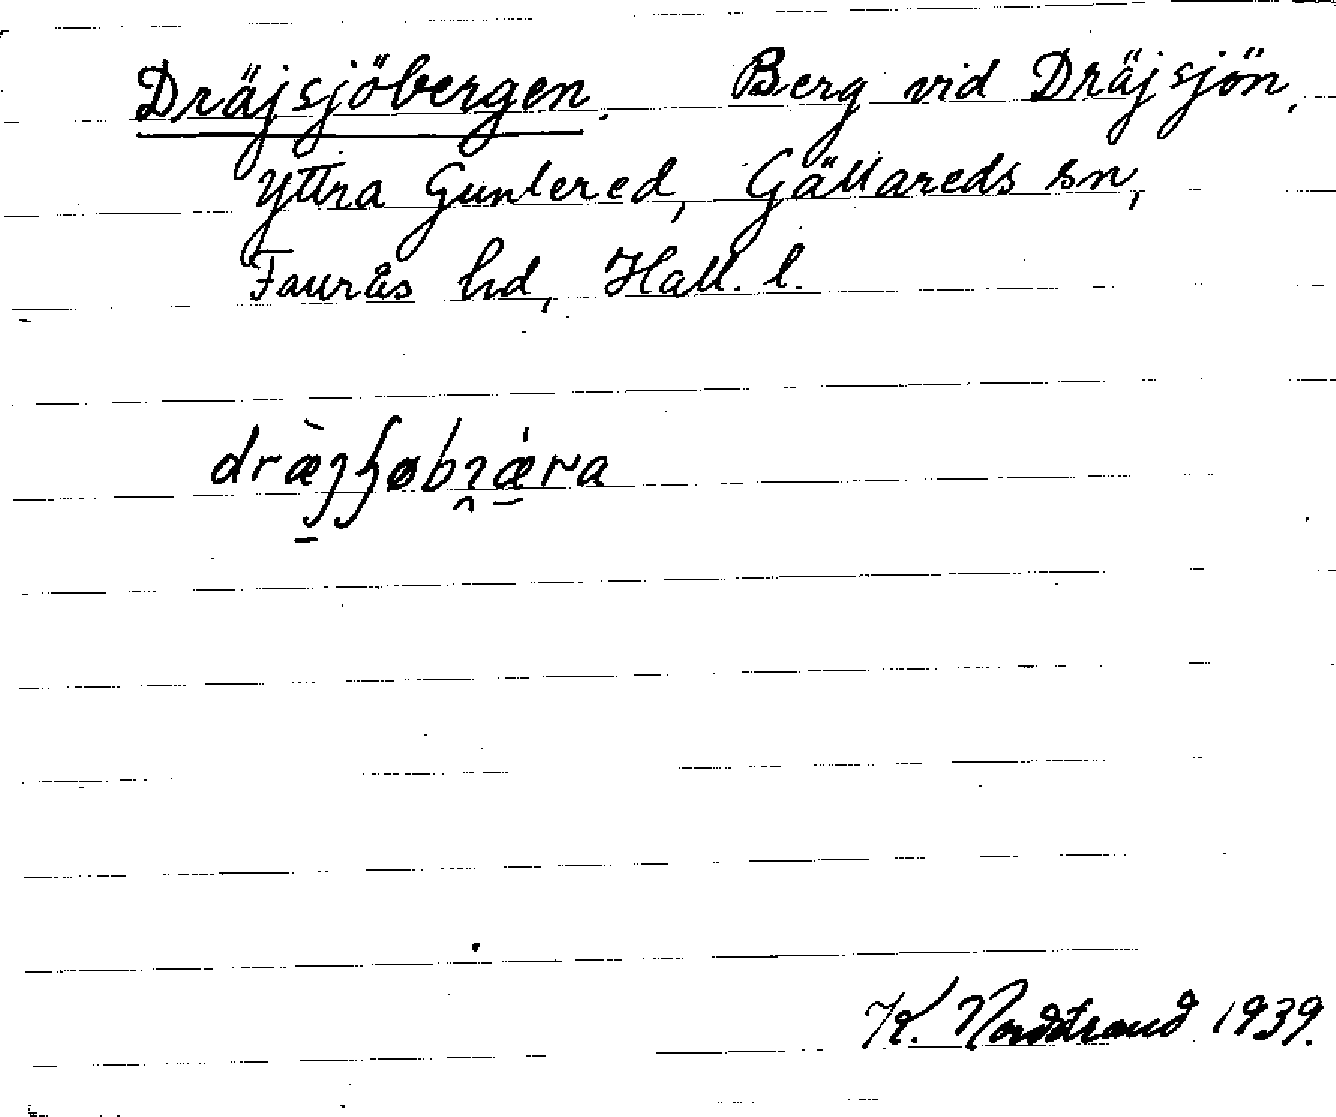 Dräjsjöbergen. Berg vid Dräjsjön,
Yttra Gunlered, Gällareds sn,
Faurås hd, Hall. l.
K. Nordstrand 1939.